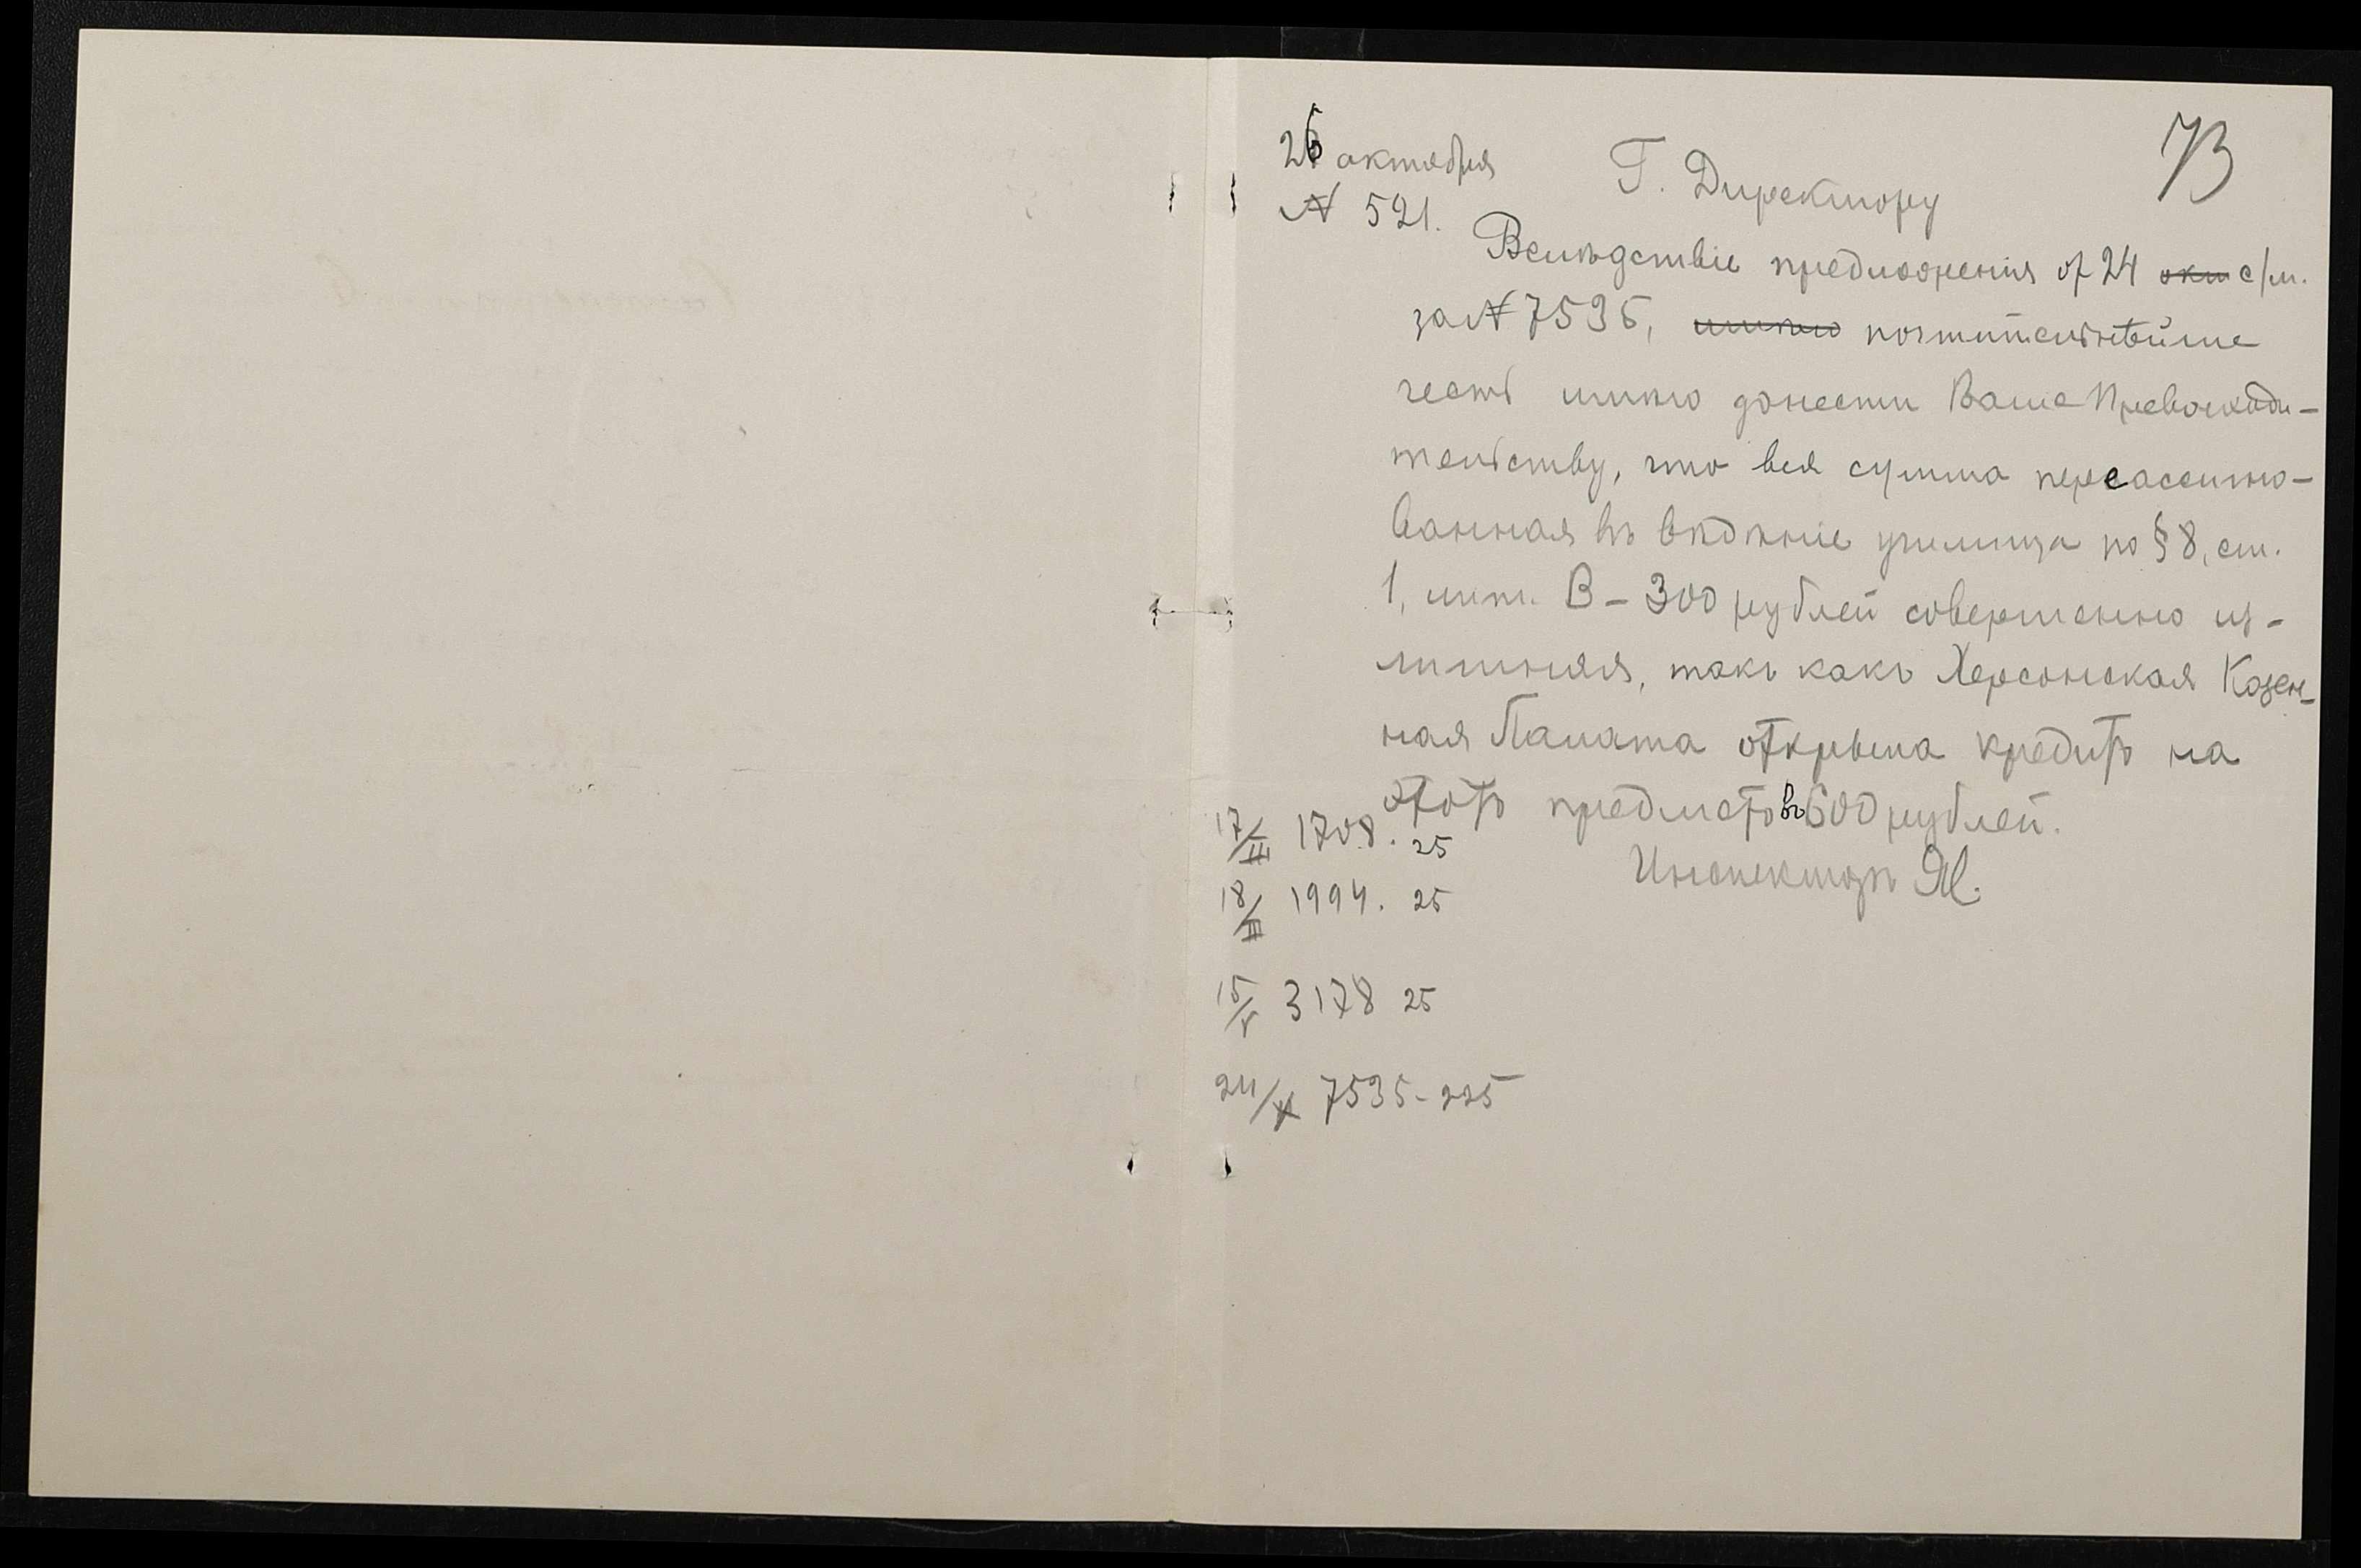 73
26 октября
№ 521.
Г. Директору
Вслѣдствіе предложенія от 24 окт с/м.
за № 7535, имѣю почтительнѣйше
честь имѣю донести Ваше Превосходи-
тельству, что вся сумма переассигно-
ванная въ вѣдѣніе училища по § 8, ст.
1, лит. В – 300 рублей совершенно из-
лишняя, такъ какъ Херсонская Казен-
ная Палата открыла кредитъ на
этотъ предметъ въ 600 рублей.
Инспекторъ Я.
17/III 1708. 25
18/III 1994. 25
15/V 3178 25
24/X 7535 - 225